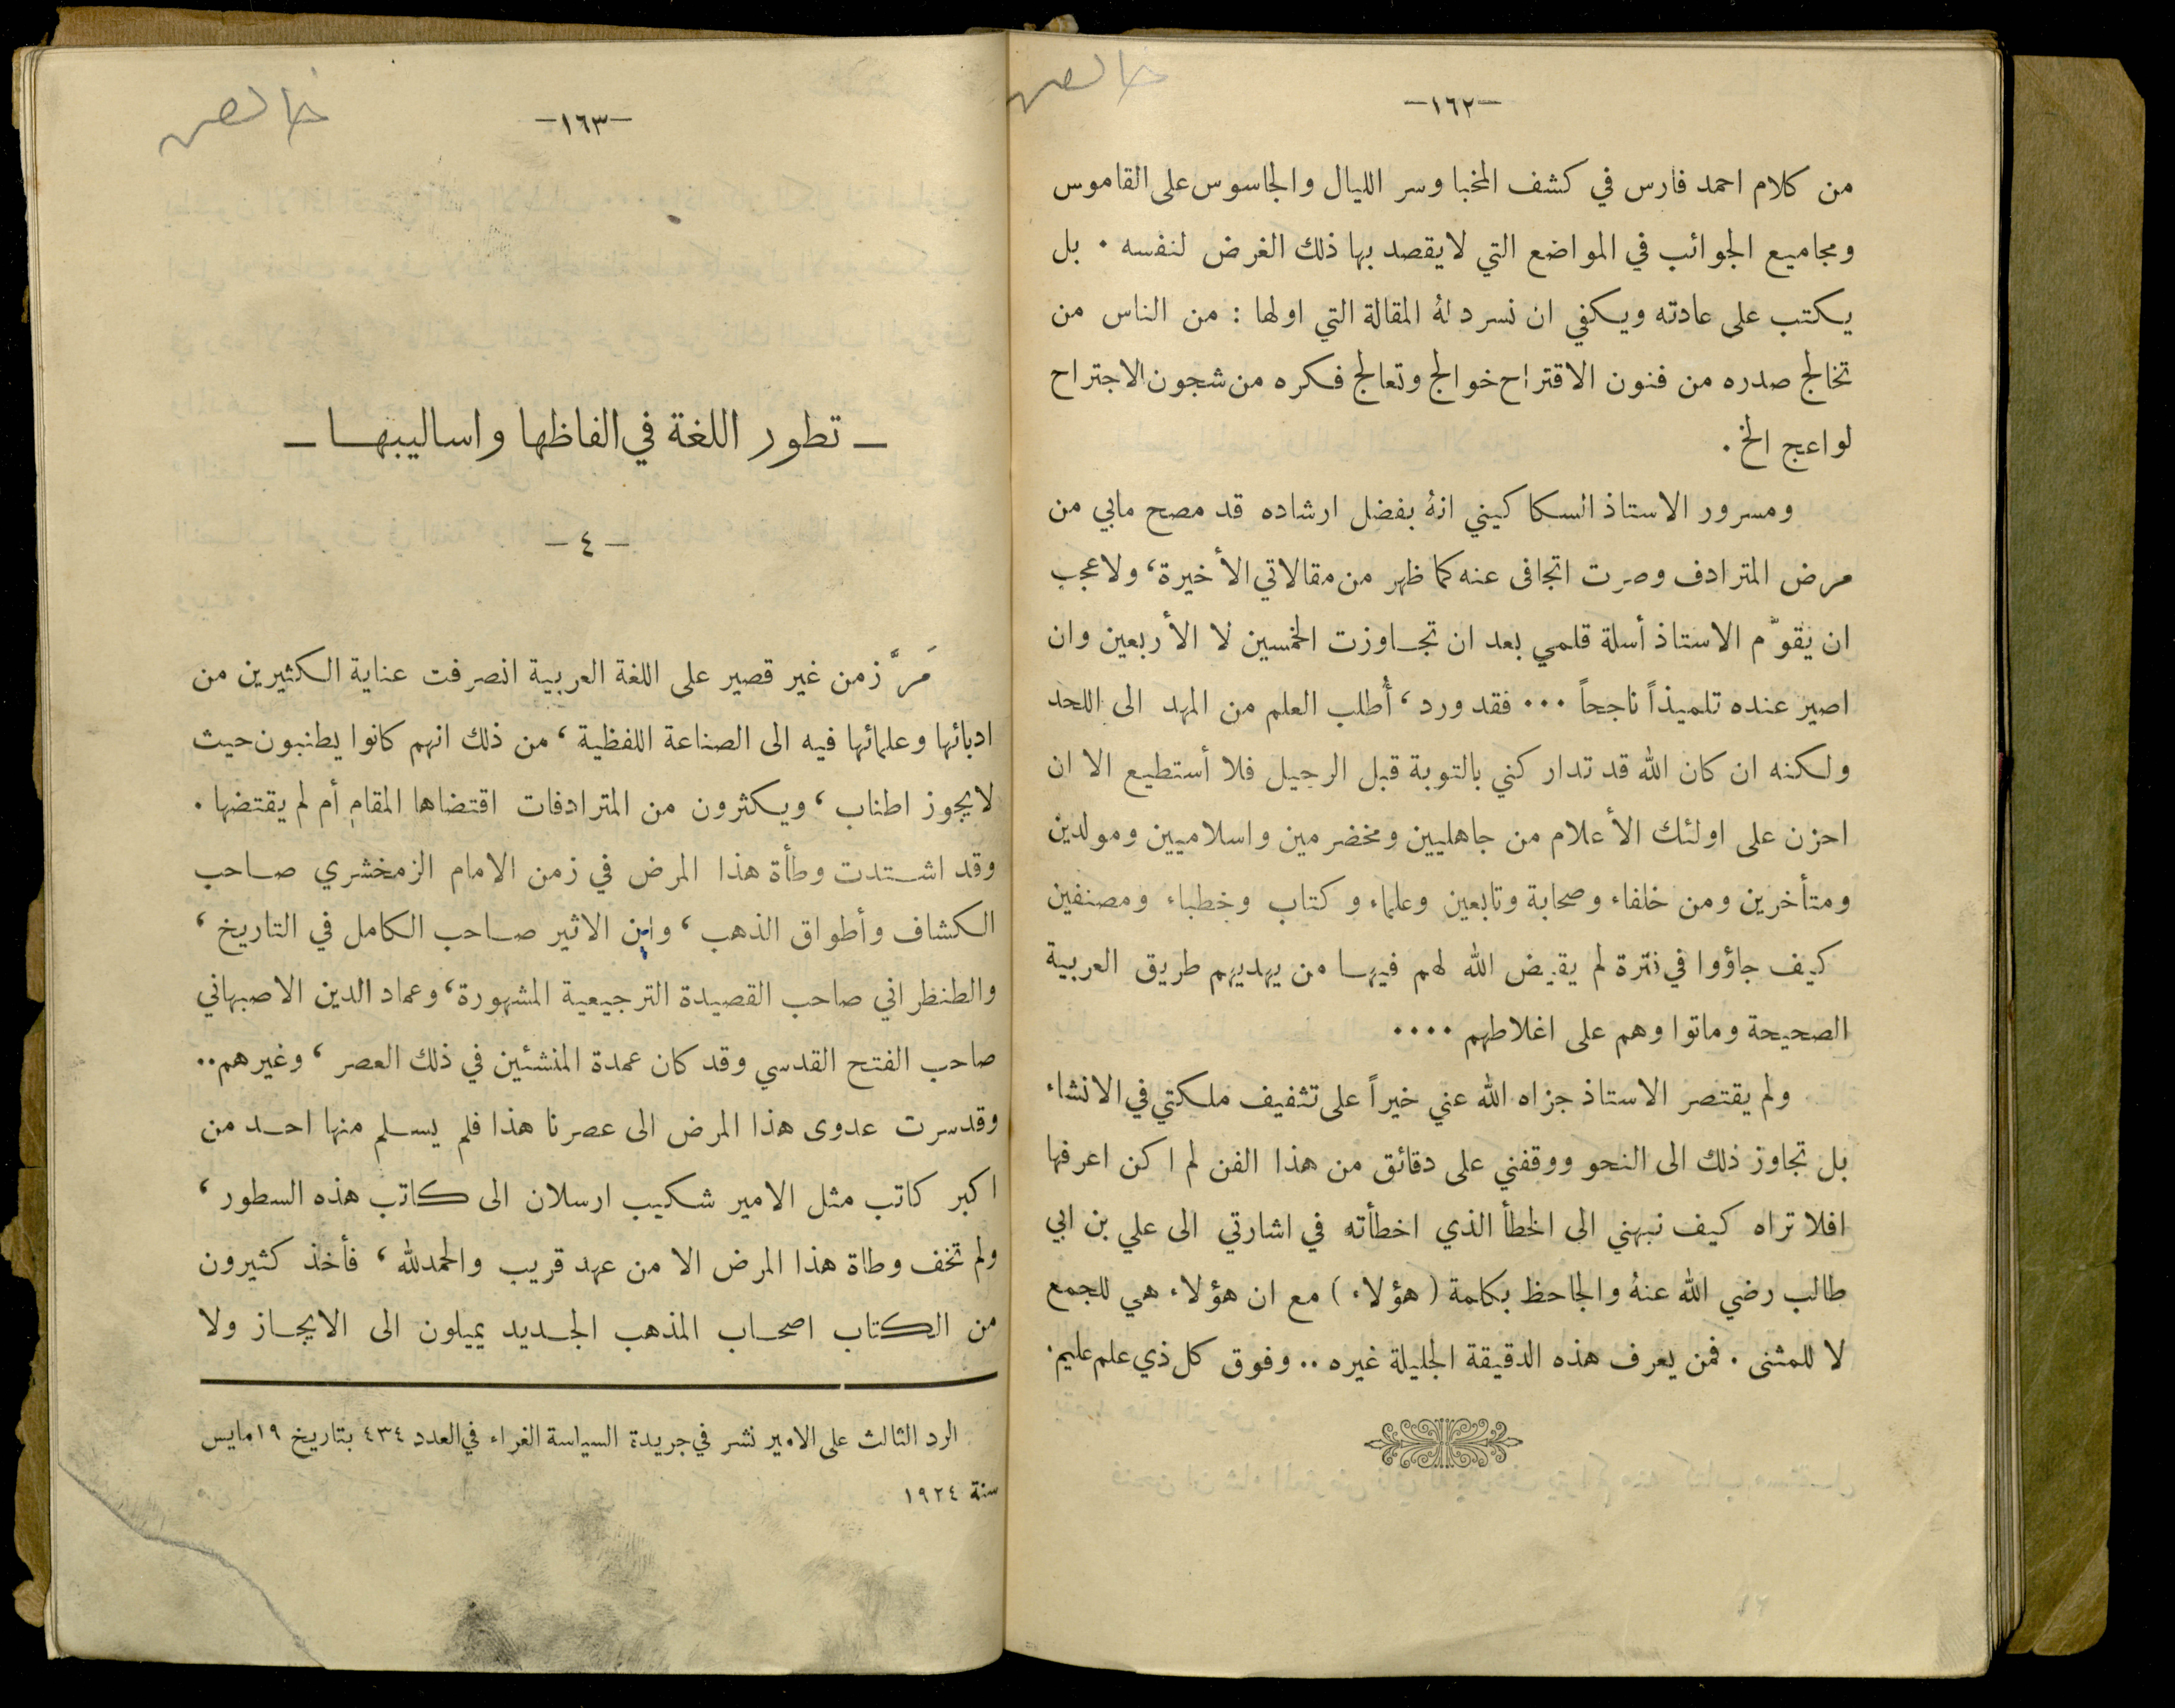 خالص
—١٦٢—
من كلام احمد فارس في كشف المخبا وسر الليال والجاسوس على القاموس
ومجاميع الجوائب في المواضع التي لايقصد بها ذلك الغرض لنفسه . بل
يكتب على عادته ويكفي ان نسرد لهُ المقالة التي اولها : من الناس من
تخالج صدره من فنون الاقتراح خوالج وتعالج فكره من شجون الاجتراح
لواعج الخ .
ومسرور الاستاذ السكاكيني انهُ بفضل ارشاده قد مصح مابي من
مرض المترادف وصرت اتجافى عنه كما ظهر من مقالاتي الأخيرة، ولاعجب
ان يقوّم الاستاذ أسلة قلمي بعد ان تجاوزت الخمسين لا الأربعين وان
اصير عنده تلميذاً ناجحاً ... فقد ورد، أُطلب العلم من المهد الى اللحد
ولكنه ان كان الله قد تداركني بالتوبة قبل الرحيل فلا أستطيع الا ان
احزن على اولئك الأعلام من جاهليين ومخضرمين واسلاميين ومولدين
ومتأخرين ومن خلفاء وصحابة وتابعين وعلماء وكتاب وخطباء ومصنفين
كيف جاؤوا في فترة لم يقيض الله لهم فيها من يهديهم طريق العربية
الصحيحة وماتوا وهم على اغلاطهم ....
ولم يقتصر الاستاذ جزاه الله عني خيراً على تثقيف ملكتي في الانشاء
بل تجاوز ذلك الى النحو ووقفني على دقائق من هذا الفن لم اكن اعرفها
افلا تراه كيف نبهني الى الخطأ الذي اخطأته في اشارتي الى علي بن ابي
طالب رضي الله عنهُ والجاحظ بكلمة (هؤلاء) مع ان هؤلاء هي للجمع
لا للمثنى . فمن يعرف هذه الدقيقة الجليلة غيره .. وفوق كل ذي علم عليم.
خالص
—١٦٣—
— تطور اللغة في الفاظها واساليبها —
— ٤ —
مَرَّ زمن غير قصير على اللغة العربية انصرفت عناية الكثيرين من
ادبائها وعلمائها فيه الى الصناعة اللفظية ، من ذلك انهم كانوا يطنبون حيث
لايجوز اطناب ، ويكثرون من المترادفات اقتضاها المقام أم لم يقتضها .
وقد اشتدت وطأة هذا المرض في زمن الامام الزمخشري صاحب
الكشاف وأطواق الذهب ، وابن الاثير صاحب الكامل في التاريخ ،
والطنطراني صاحب القصيدة الترجيعية المشهورة، وعماد الدين الاصبهاني
صاحب الفتح القدسي وقد كان عمدة المنشئين في ذلك العصر ، وغيرهم..
وقد سرت عدوى هذا المرض الى عصرنا هذا فلم يسلم منها احد من
اكبر كاتب مثل الامير شكيب ارسلان الى كاتب هذه السطور ،
ولم تخف وطاة هذا المرض الا من عهد قريب والحمدلله ، فأخذ كثيرون
من الكتاب اصحاب المذهب الجديد يميلون الى الايجاز ولا
الرد الثالث على الامير نشر في جريدة السياسة الغراء في العدد ٤٣٤ بتاريخ ١٩ مايس
سنة ١٩٢٤